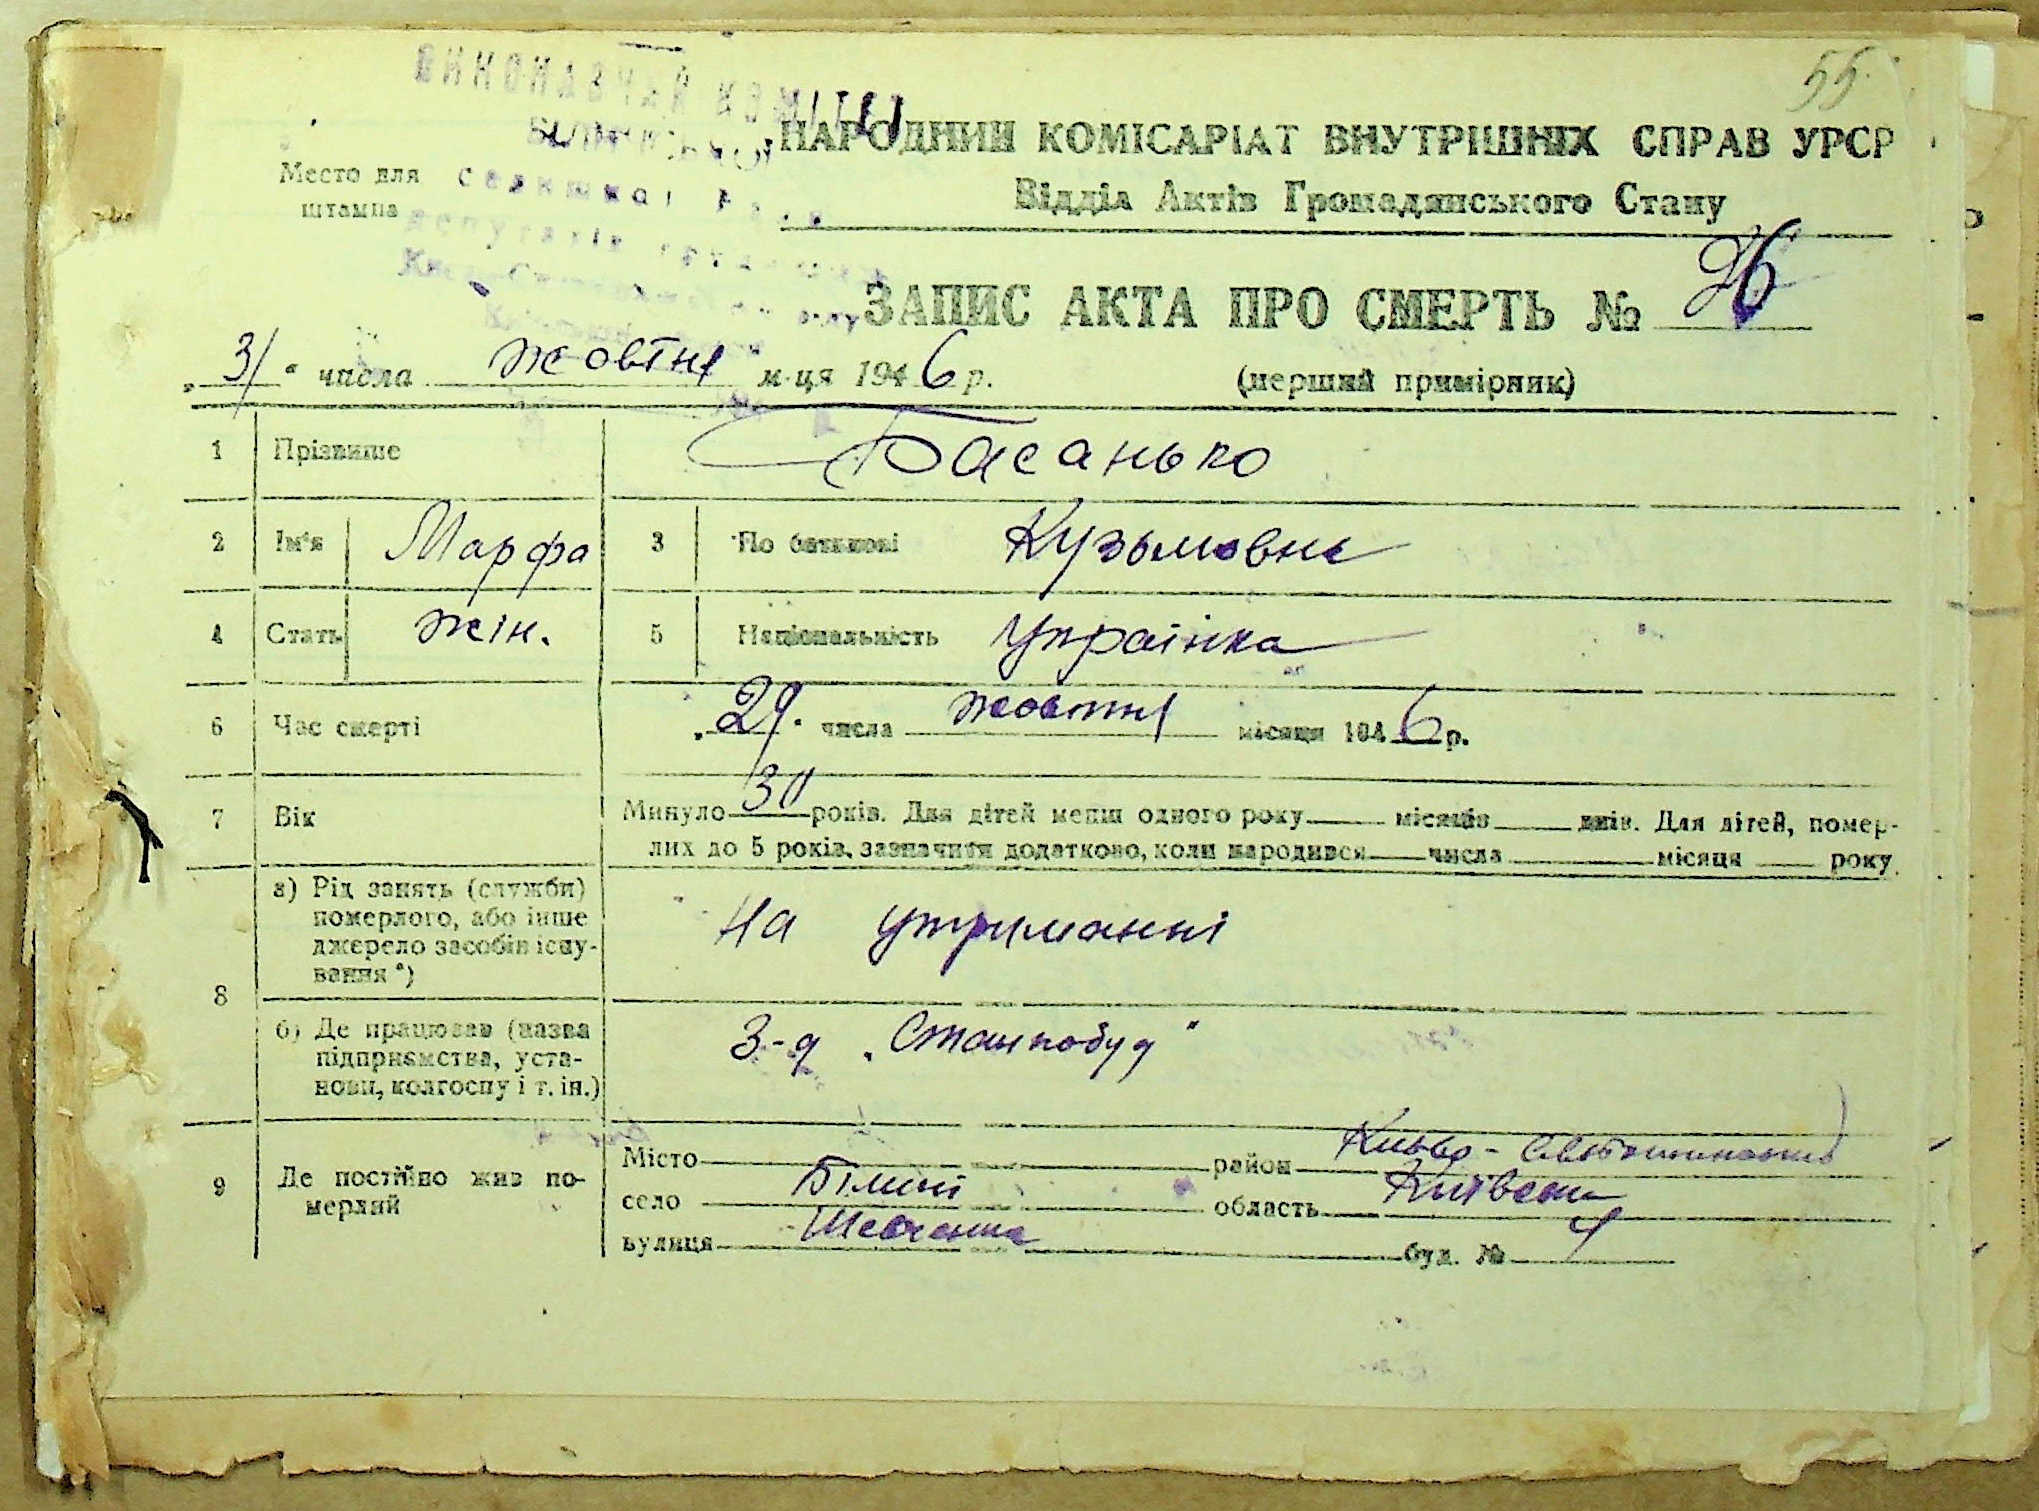 55.
ВИКОНАВЧИЙ КОМІТЕТ
НАРОДНИЙ КОМІСАРІАТ ВНУТРІШНІХ СПРАВ УРСР
Место для штампа
селищної Ради
депутатів трудящих
Відділ Актів Громадянського Стану
ЗАПИС АКТА ПРО СМЕРТЬ № 26
„31“ числа жовтня м-ця 1946 р. (перший примірник)
1 Прізвище Басанько
2 Ім'я Марфа 3 По батькові Кузьмовна
4 Стать жін. 5 Національність Українка
6 Час смерті „29. числа жовтня місяця 1946 р.
7 Вік Минуло 30 років. Для дітей менш одного року місяців днів. Для дітей, помер-
лих до 5 років, зазначити додатково, коли народився числа місяця року
8 а) Рід занять (служби)
померлого, або інше
джерело засобів існу-
вання*)
На утриманні
б) Де працював (назва
підприємства, уста-
нови, колгоспу і т. ін.)
З-д „
9 Де постійно жив по-
мерлий
Місто район Києво-Святошинський
село Біличі область Київська
вулиця Шевченка буд. № 4